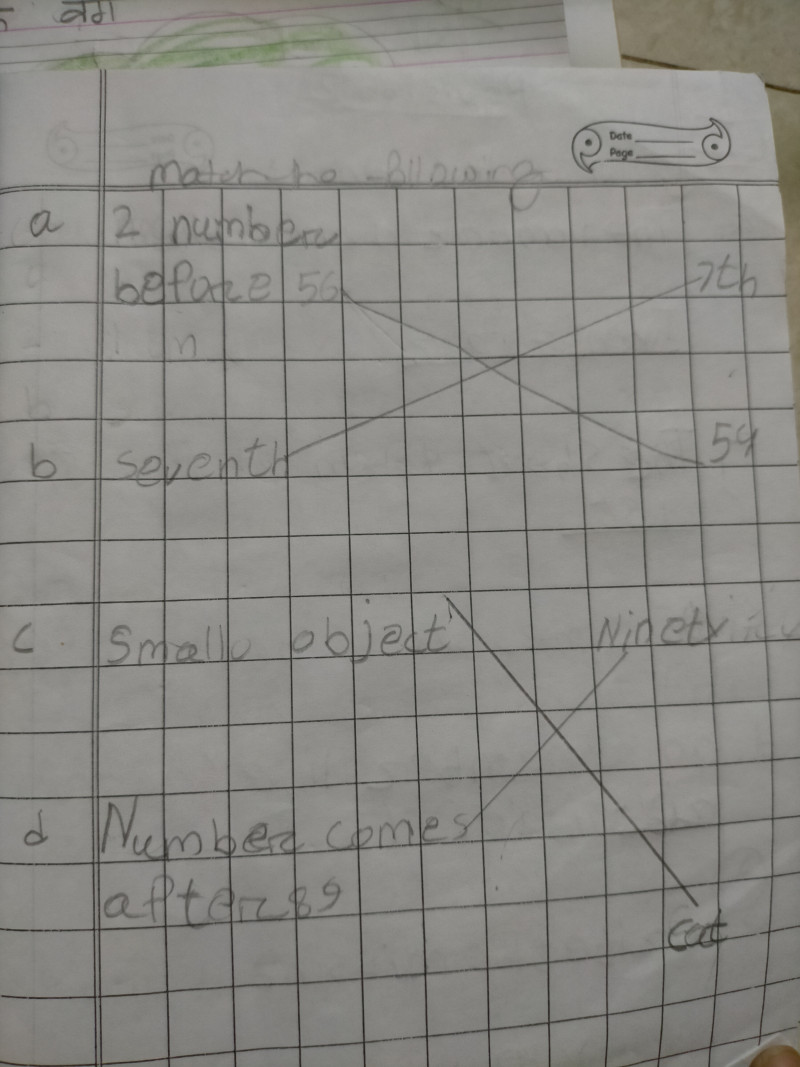 वर्ग
Date
Page
Match he following
a 2 number
before 56 7th
b seventh 54
c. Small object Ninety
d Number comes
after 89
cat